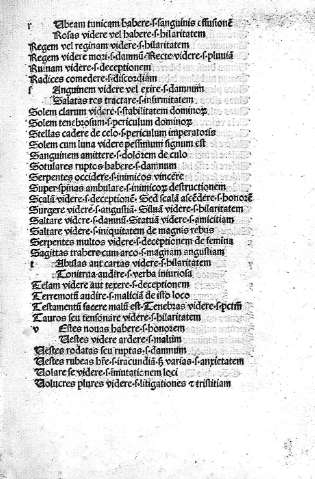 r Ubeam tunicam habere·s·sanguinis effusionē
Rosas videre vel habere·s·hilaritatem
Regem vel reginam videre·s·hilaritatem
Regem videre mori·s·damnū·Recte videre·s·pluviā
Ruinam videre·s·deceptionem
Radices comedere·s·discordiam
ſ Anguinem videre vel exire·s·damnum
Salatas res tractare·s·infirmitatem
Solem clarum videre·s·stabilitatem dominoꝝ
Solem tenebrosum·s·periculum dominoꝝ
Stellas cadere de celo·s·periculum imperatoris
Solem cum luna videre pessimum signum est
Sanguinem amittere·s·dolorem de culo
Sotulares ruptos habere·s·damnum
Serpentes occidere·s·inimicos vincere
Super spinas ambulare·s·inimicoꝝ destructionem
Scalā videre·s·deceptionē· Sed scalā ascēdere·s·honorē
Surgere videre·s·angustiā· Siluā videre·s·hilaritatem
Saltare videre·s·damnū· Statuā videre·s·amicitiam
Saltare videre·s·iniquitatem de magnis rebus
Serpentes multos videre·s·deceptionem de femina
Sagittas trahere cum arco·s·magnam angustiam
t Abulas aut cartas videre·s·hilaritatem
Tonitrua audire·s·verba iniuriosa
Telam videre aut texere·s·deceptionem
Terremotū audire·s·maliciā de isto loco
Testamentū facere malū est· Tenebras videre·s·
Tauros seu tensonare videre·s·hilaritatem
v Estes nouas habere·s·honorem
Uestes videre ardere·s·malum
Uestes rodatas seu ruptas·s·damnum
Uestes rubeas hr̄e·s·iracundiā· varias·s·anxietatem
Uolare se videre·s·imutationem loci
Uolucres plures videre·s·litigationes ⁊ tristitiam